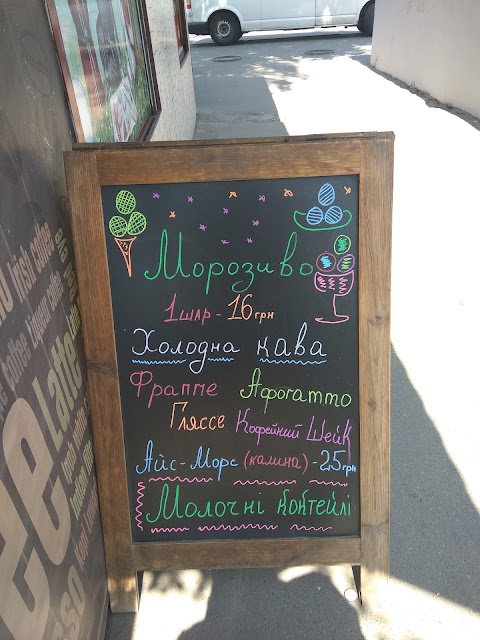 Морозиво
1 шар - 16 грн
Холодна кава
Фрапе Афогатто
Гляссе Кофейний Шейк
Айс-Морс (калина) - 25 грн
Молочні коктейлі
Irish coffee
Latte